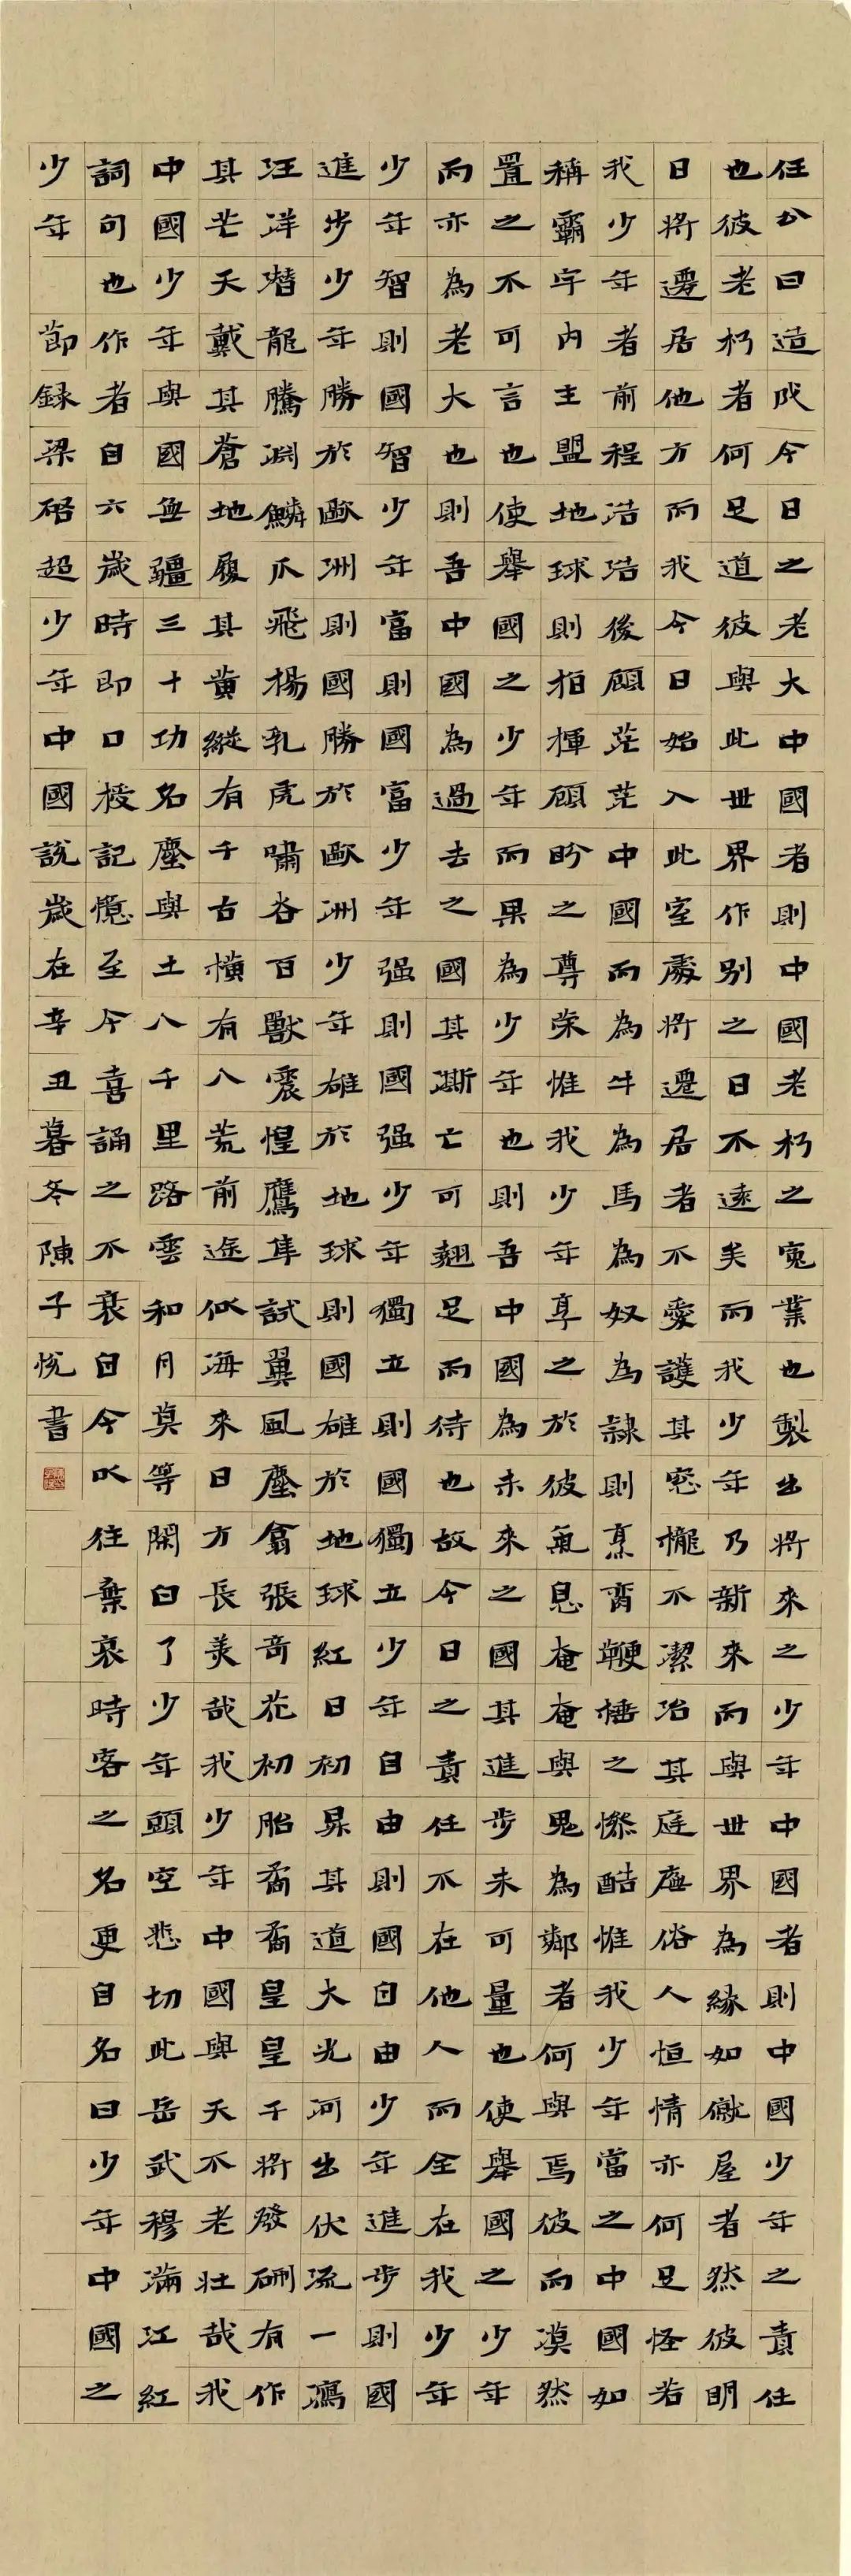 任公曰造成今日之老大中國者則中國老朽之冤業也製出將來之少年中國者則中國少年之責任
也彼老朽者何足道彼與此世界作別之日不遠矣而我少年乃新來而與世界為緣如僦屋者然彼明
日將遷居他方而我今日始入此室處將遷居者不愛護其窓櫳不潔治其庭廡俗人恒情亦何足怪若
我少年者前程浩浩後顧茫茫中國而為牛為馬為奴為隸則烹臠鞭箠之慘酷惟我少年當之中國如
稱霸宇內主盟地球則指揮顧盼之尊榮惟我少年享之於彼氣息奄奄與鬼為鄰者何與焉彼而漠然
置之不可言也使舉國之少年而果為少年也則吾中國為未來之國其進步未可量也使舉國之少年
而亦為老大也則吾中國為過去之國其澌亡可翹足而待也故今日之責任不在他人而全在我少年
少年智則國智少年富則國富少年强則國强少年獨立則國獨立少年自由則國自由少年進步則國
進步少年勝於歐洲則國勝於歐洲少年雄於地球則國雄於地球紅日初昇其道大光河出伏流一瀉
汪洋潛龍騰淵鱗爪飛揚乳虎嘯谷百獸震惶鷹隼試翼風塵翕張奇花初胎矞矞皇皇干將發硎有作
其芒天戴其蒼地履其黃縱有千古橫有八荒前途似海來日方長美哉我少年中國與天不老壯哉我
中國少年與國無疆三十功名塵與土八千里路雲和月莫等閑白了少年頭空悲切此岳武穆滿江紅
詞句也作者自六歲時即口授記憶至今喜誦之不衰自今以往棄哀時客之名更自名曰少年中國之
少年 節録梁啓超少年中國說歲在辛丑暮冬陳子悅書